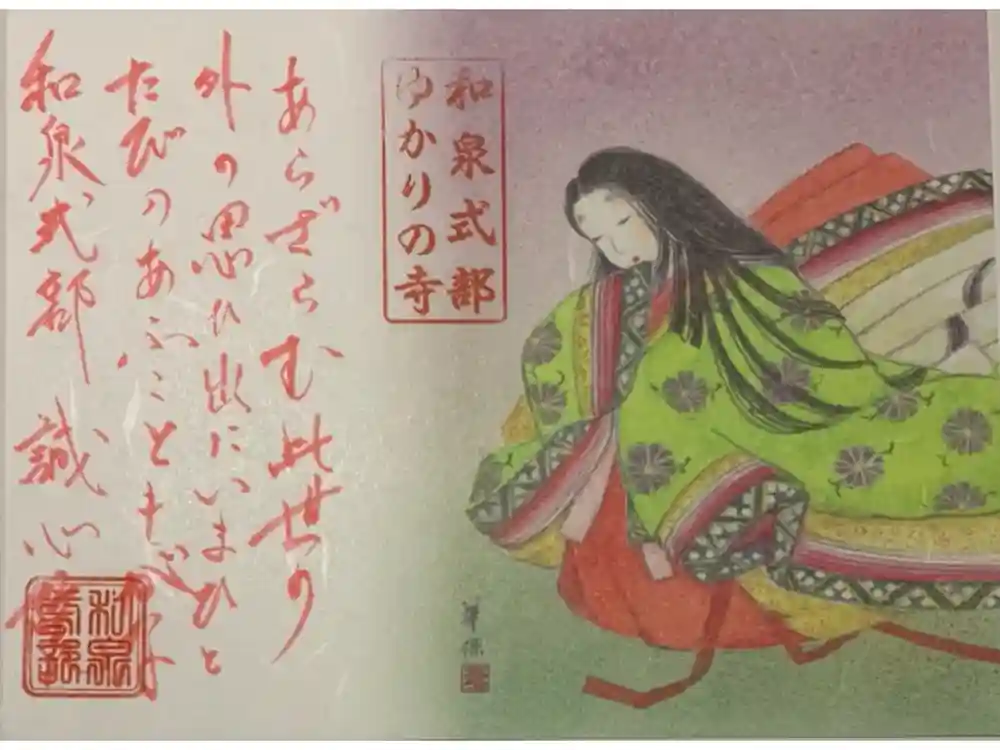 和泉式部
ゆかりの寺
あらざらむ此世の
外の思ひ出にいまひと
たびのあふこともがな
和泉式部 誠心
和泉
式部